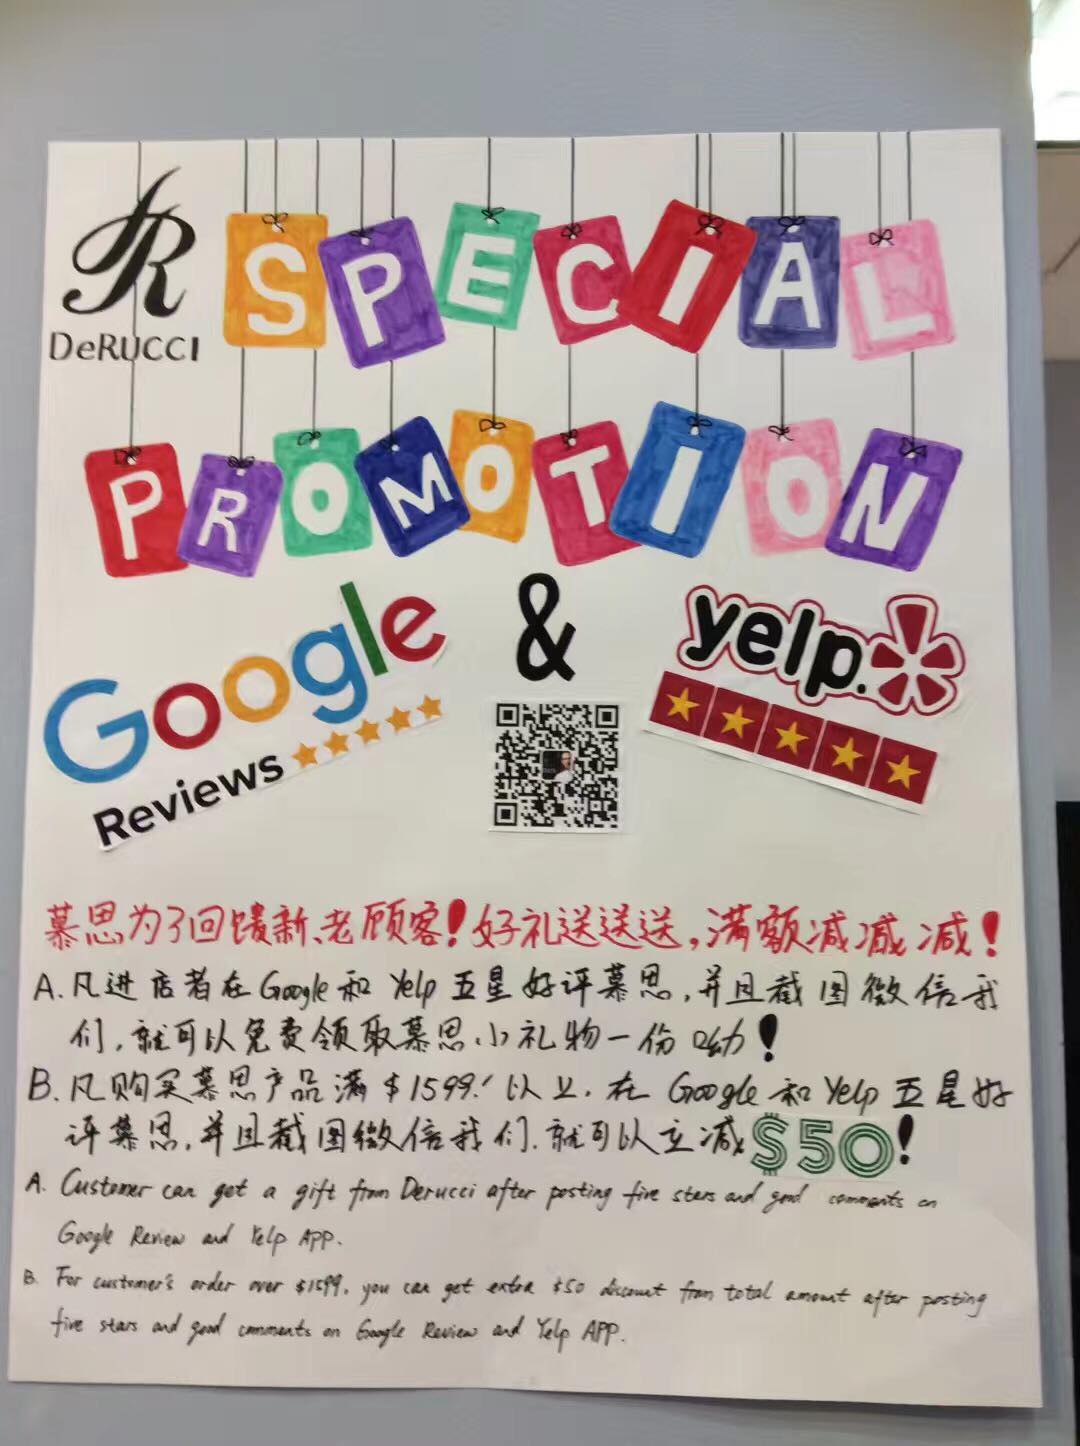 DeRUCCI
SPECIAL
PROMOTION
Google & yelp
Reviews
慕思为了回馈新、老顾客!好礼送送送,满额减减减!
A.凡进店者在Google和Yelp五星好评慕思,并且截图微信我
们,就可以免费领取慕思小礼物一份呦!
B.凡购买慕思产品满$1599!以上,在Google和Yelp五星好
评慕思,并且截图微信我们,就可以立减$50!
A. Customer can get a gift from Derucci after posting five stars and good comments on
Google Review and Yelp APP.
B. For customer's order over $1599, you can get extra $50 discount from total amount after posting
five stars and good comments on Google Review and Yelp APP.